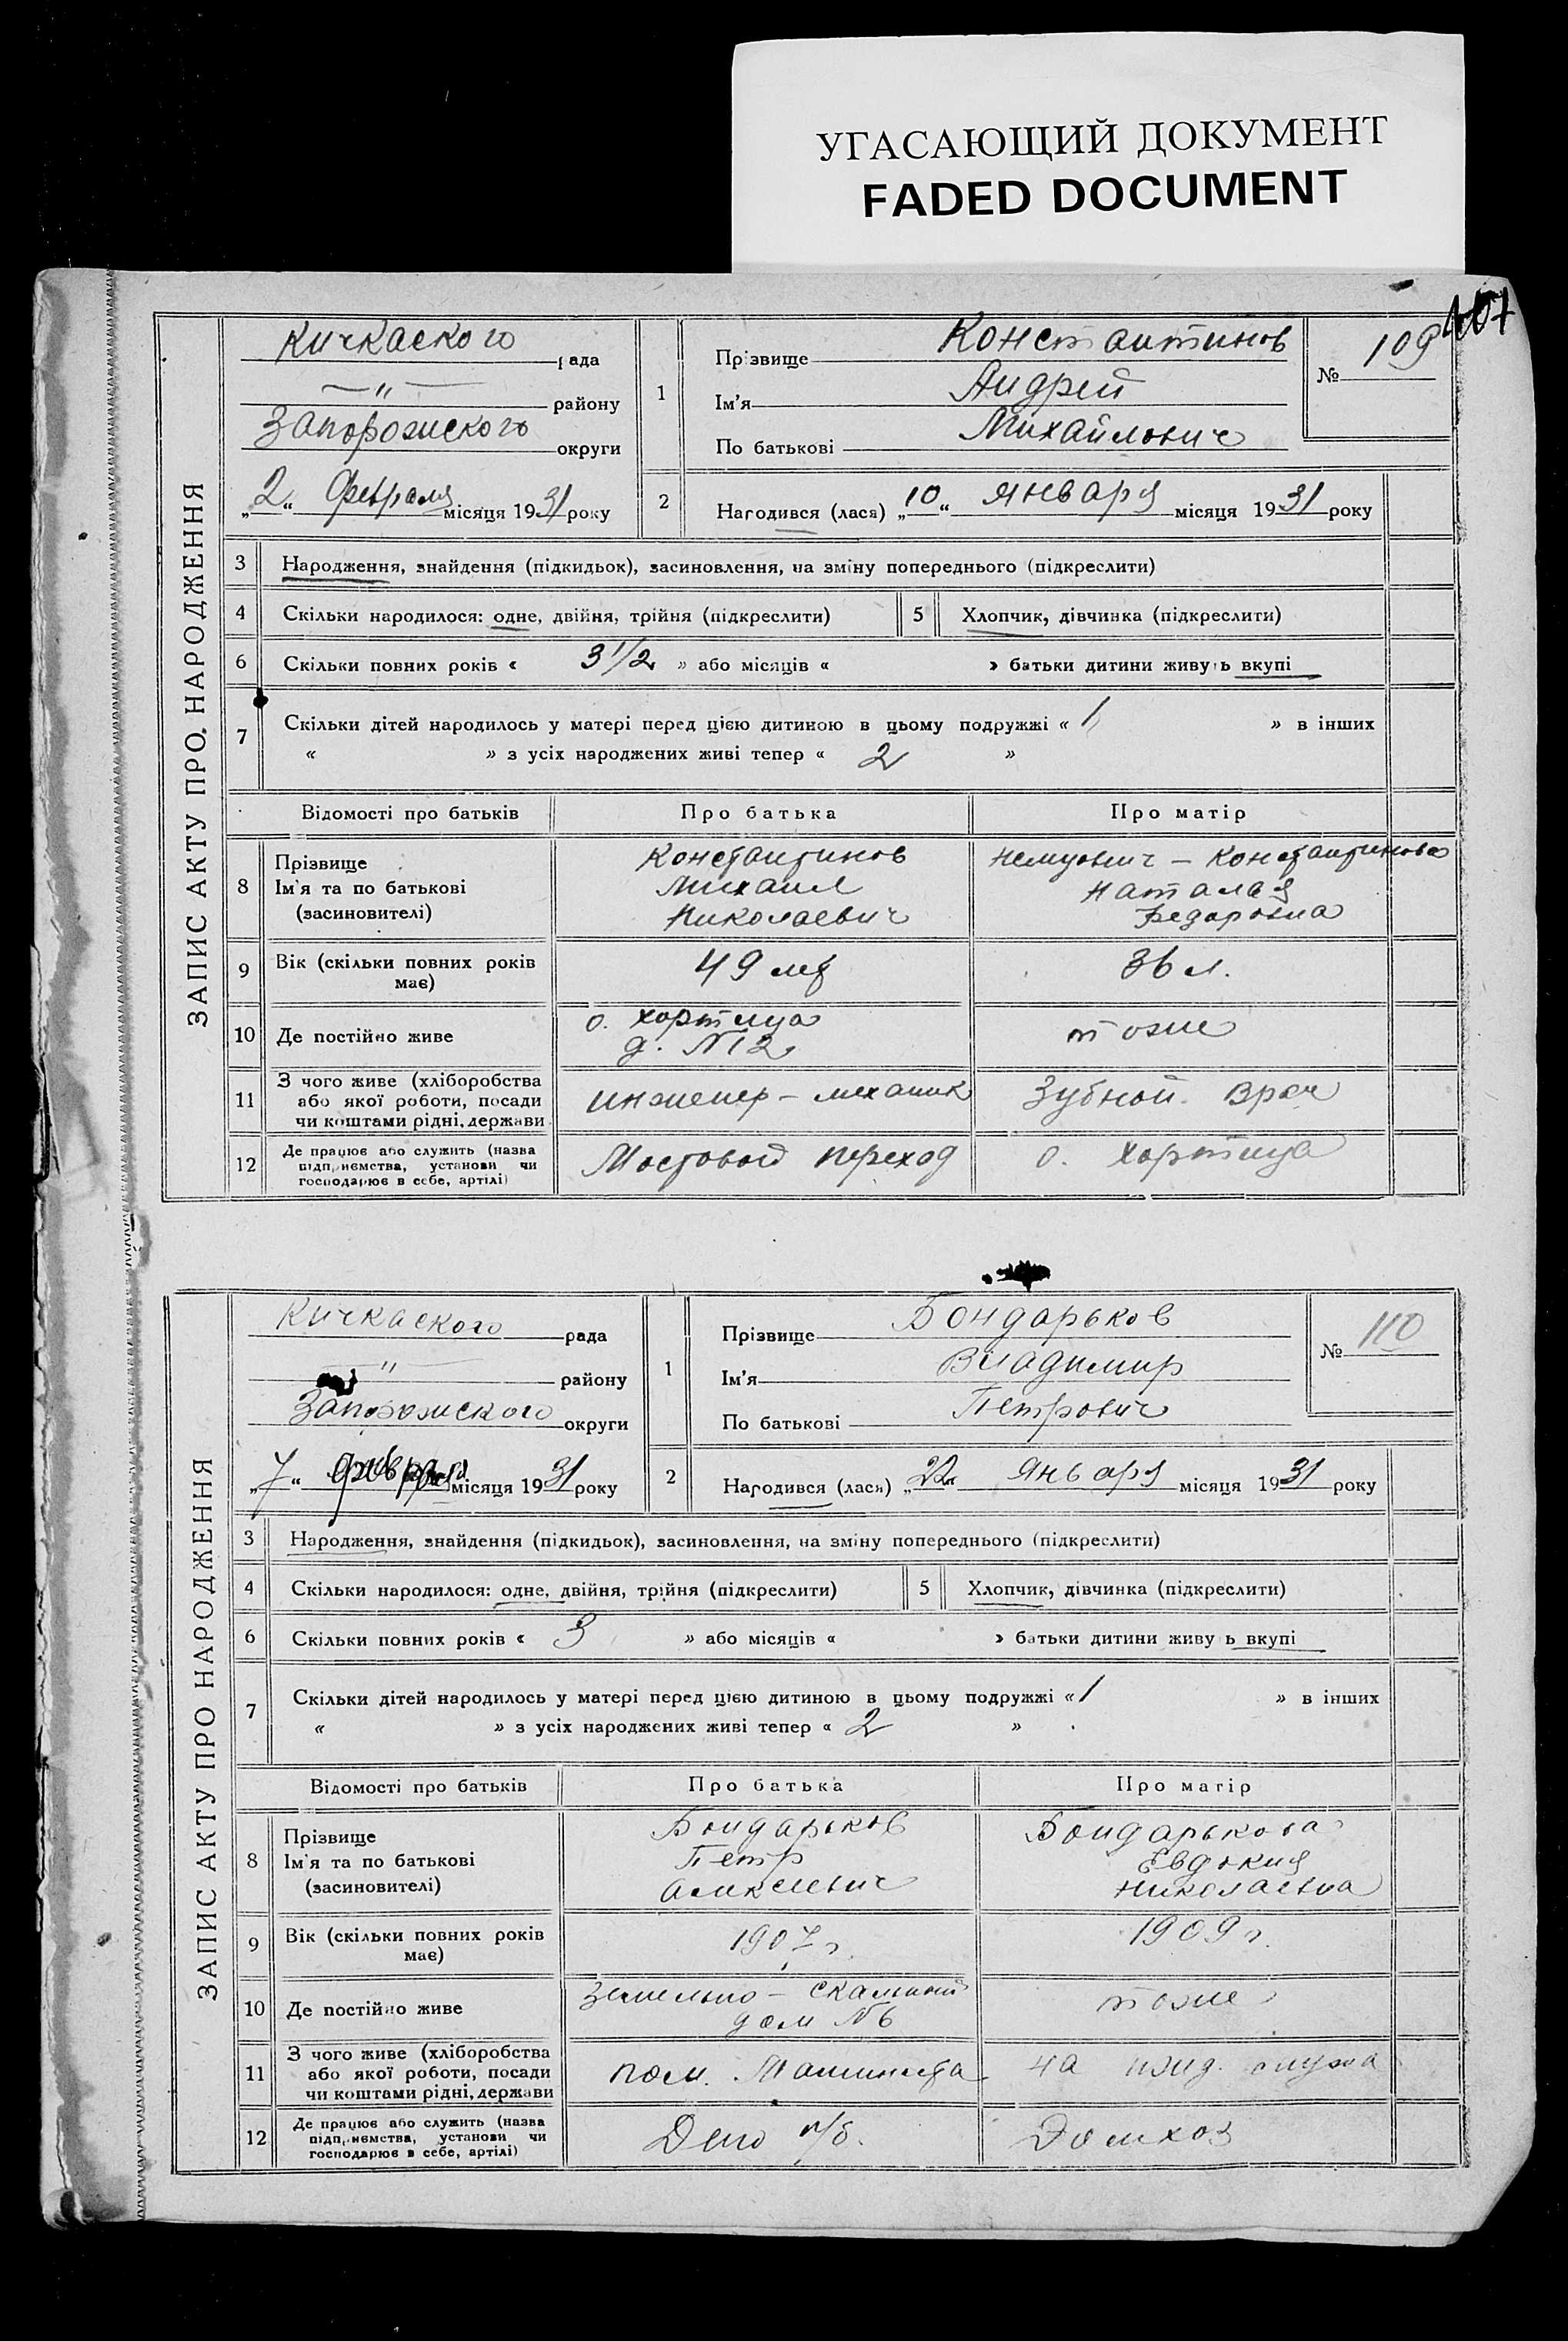 УГАСАЮЩИЙ ДОКУМЕНТ
FADED DOCUMENT
107
ЗАПИС АКТУ ПРО НАРОДЖЕННЯ
Кичкаского рада
—"— району
Запорожского округи
„2" Февраля місяця 1931 року
1
Прізвище Константинов
Ім'я Андрей
По батькові Михайлович
№ 109
2
Народився (лася) „10" января місяця 1931 року
3 Народження, знайдення (підкидьок), засиновлення, на зміну попереднього (підкреслити)
4 Скільки народилося: одне, двійня, трійня (підкреслити)
5 Хлопчик, дівчинка (підкреслити)
6 Скільки повних років « 3 1/2 » або місяців « » батьки дитини живуть вкупі
7 Скільки дітей народилось у матері перед цією дитиною в цьому подружжі « 1 » в інших
« » з усіх народжених живі тепер « 2 »
Відомості про батьків Про батька Про матір
8
Прізвище
Ім'я та по батькові
(засиновителі)
Константинов
Михаил
Николаевич
Немцович – Константинова
Наталья
Федоровна
9 Вік (скільки повних років
має)
49 лет
36 л.
10 Де постійно живе
о. хортица
д. №12
тоже
11
З чого живе (хліборобства
або якої роботи, посади
чи коштами рідні, держави
инженер – механик
Зубной врач
12
Де працює або служить (назва
підприємства, установи чи
господарює в себе, артілі)
Мостовой переход
о. хортица
ЗАПИС АКТУ ПРО НАРОДЖЕННЯ
Кичкаского рада
—"— району
Запорожского округи
„7" февраля місяця 1931 року
1
Прізвище Бондарьков
Ім'я Владимир
По батькові Петрович
№ 110
2
Народився (лася) „22" января місяця 1931 року
3 Народження, знайдення (підкидьок), засиновлення, на зміну попереднього (підкреслити)
4 Скільки народилося: одне, двійня, трійня (підкреслити)
5 Хлопчик, дівчинка (підкреслити)
6 Скільки повних років « 3 » або місяців « » батьки дитини живуть вкупі
7 Скільки дітей народилось у матері перед цією дитиною в цьому подружжі « 1 » в інших
« » з усіх народжених живі тепер « 2 »
Відомості про батьків Про батька Про матір
8
Прізвище
Ім'я та по батькові
(засиновителі)
Бондарьков
Петр
Алексеевич
Бондарькова
Евдокия
Николаевна
9 Вік (скільки повних років
має)
1907 г.
1909 г.
10 Де постійно живе
Земельно – скальный
дом №6
тоже
11
З чого живе (хліборобства
або якої роботи, посади
чи коштами рідні, держави
пом. Машиниста
на ижд. мужа
12
Де працює або служить (назва
підприємства, установи чи
господарює в себе, артілі)
Депо
Домхоз